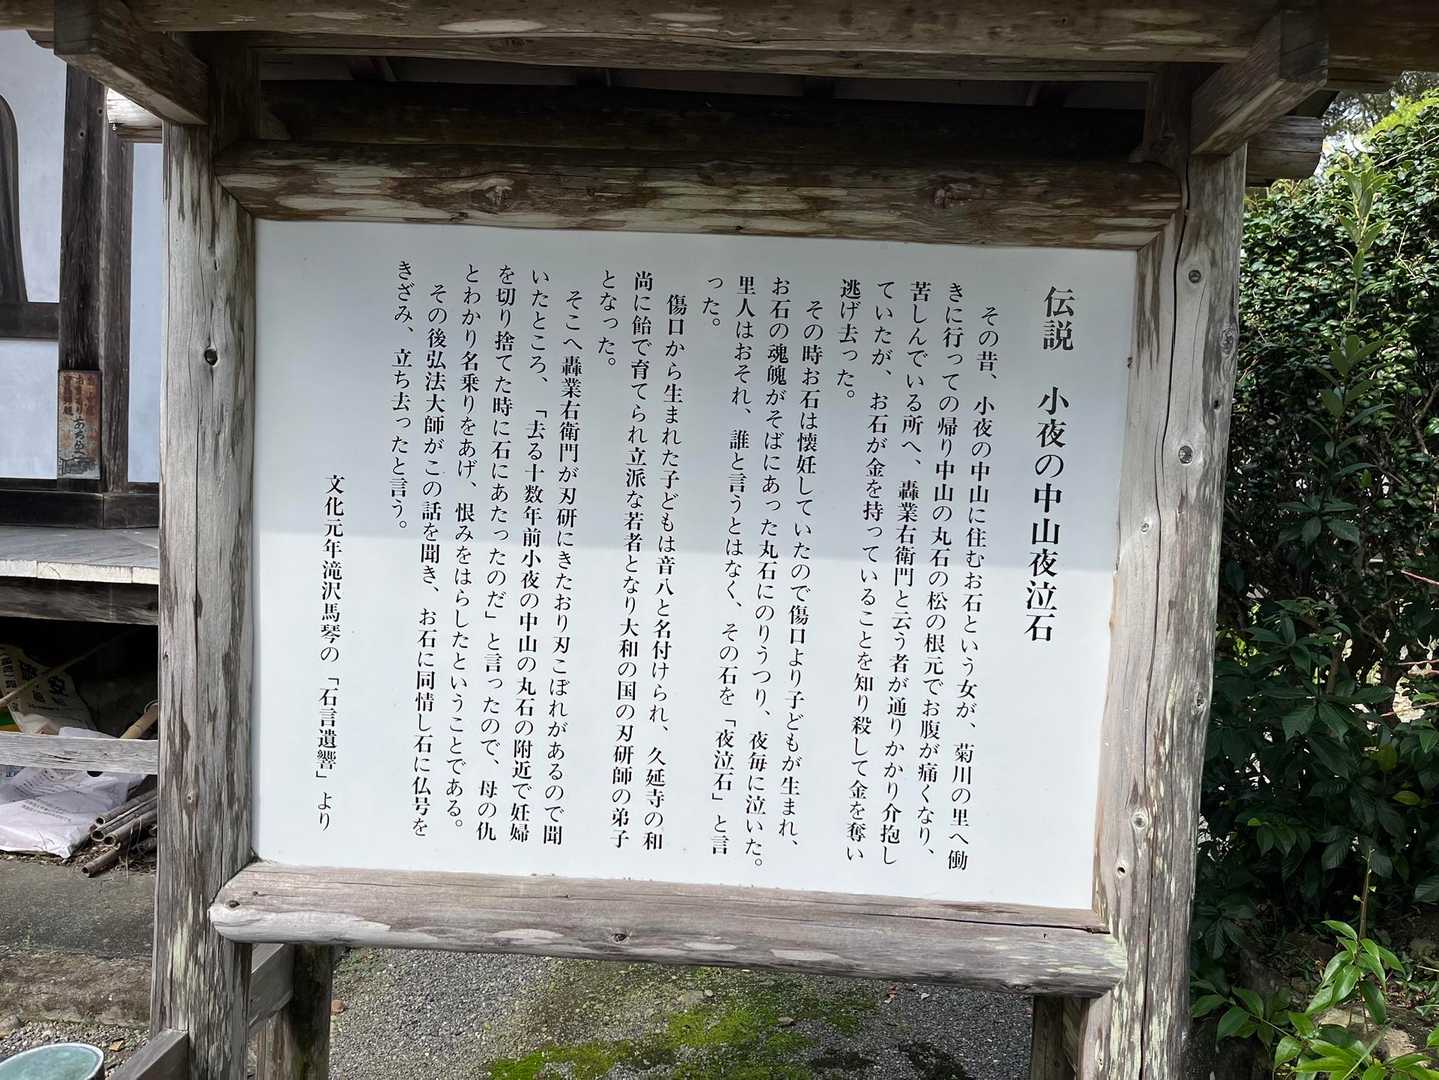 伝説　小夜の中山夜泣石
その昔、小夜の中山に住むお石という女が、菊川の里へ働
きに行っての帰り中山の丸石の松の根元でお腹が痛くなり、
苦しんでいる所へ、轟業右衛門と云う者が通りかかり介抱し
ていたが、お石が金を持っていることを知り殺して金を奪い
逃げ去った。
その時お石は懐妊していたので傷口より子どもが生まれ、
お石の魂魄がそばにあった丸石にのりうつり、夜毎に泣いた。
里人はおそれ、誰と言うとはなく、その石を「夜泣石」と言
った。
傷口から生まれた子どもは音八と名付けられ、久延寺の和
尚に飴で育てられ立派な若者となり大和の国の刃研師の弟子
となった。
そこへ轟業右衛門が刃研にきたおり刃こぼれがあるので聞
いたところ、「去る十数年前小夜の中山の丸石の附近で妊婦
を切り捨てた時に石にあたったのだ」と言ったので、母の仇
とわかり名乗りをあげ、恨みをはらしたということである。
その後弘法大師がこの話を聞き、お石に同情し石に仏号を
きざみ、立ち去ったと言う。
文化元年滝沢馬琴の「石言遺響」より